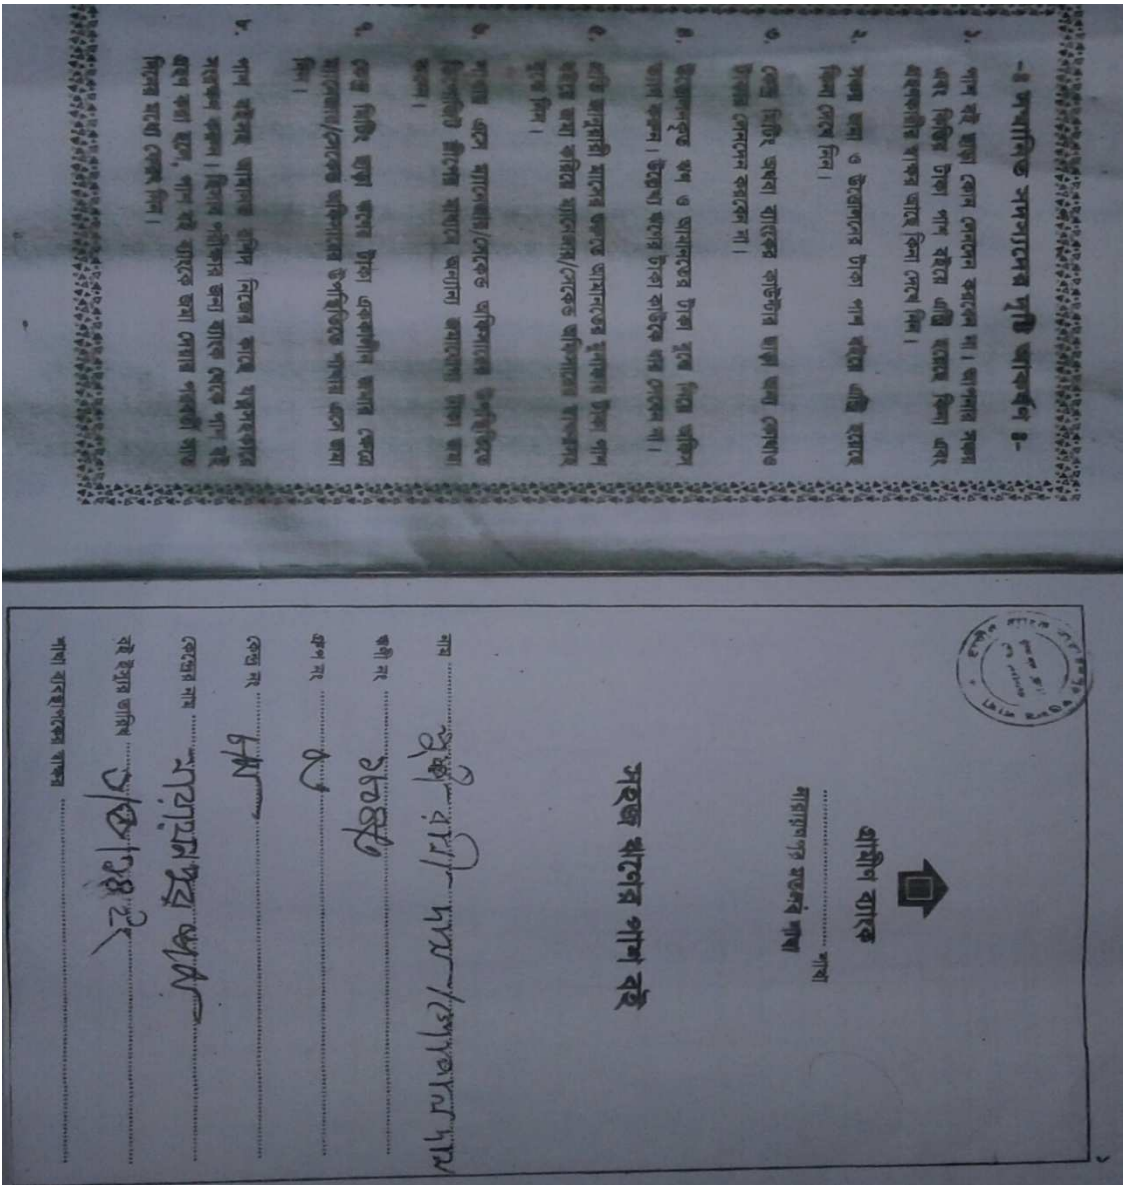 -ঃ সম্মানিত সদস্যদের দৃষ্টি আকর্ষন ঃ-
১. পাশ বই ছাড়া কোন লেনদেন করবেন না। আপনার সঞ্চয়
এবং কিস্তির টাকা পাশ বইতে এন্ট্রি হয়েছে কিনা এবং
গ্রহণকারীর স্বাক্ষর আছে কিনা দেখে নিন।
২. সঞ্চয় জমা ও উত্তোলনের টাকা পাশ বইতে এন্ট্রি হয়েছে
কিনা দেখে নিন।
৩. কেন্দ্র মিটিং অথবা ব্যাংকের কাউন্টার ছাড়া অন্য কোথাও
টাকার লেনদেন করবেন না।
৪. উত্তোলনকৃত ঋণ ও আমানতের টাকা বুঝে নিয়ে অফিস
ত্যাগ করুন। উত্তোলিত ঋণের টাকা কাউকে ধার দেবেন না।
৫. প্রতি জানুয়ারী মাসের মধ্যে আমানতের মুনাফার টাকা পাশ
বইতে জমা করিয়ে ম্যানেজার/সেকেন্ড অফিসারের স্বাক্ষরসহ
বুঝে নিন।
৬. শাখায় এসে ম্যানেজার/সেকেন্ড অফিসারের উপস্থিতিতে
ডিপোজিট স্লীপের মাধ্যমে অন্যান্য আমানতের টাকা জমা
করুন।
৭. কেন্দ্র মিটিং ছাড়া ঋণের টাকা এককালীন জমার ক্ষেত্রে
ম্যানেজার/সেকেন্ড অফিসারের উপস্থিতিতে শাখায় এসে জমা
দিন।
৮. পাশ বইসহ আমানত রশিদ নিজের কাছে যত্নসহকারে
সংরক্ষন করুন। হিসাব পরীক্ষার জন্য ব্যাংক থেকে পাশ বই
গ্রহন করা হলে, পাশ বই ব্যাংকে জমা দেয়ার পরবর্তী সাত
দিনের মধ্যে ফেরৎ নিন।
১
গ্রামীণ ব্যাংক
শাখা
নারায়ণপুর মতলব শাখা
সহজ ঋণের পাশ বই
নাম
ঋণী নং
গ্রুপ নং
কেন্দ্র নং
কেন্দ্রের নাম
বই ইস্যুর তারিখ
শাখা ব্যবস্থাপকের স্বাক্ষর